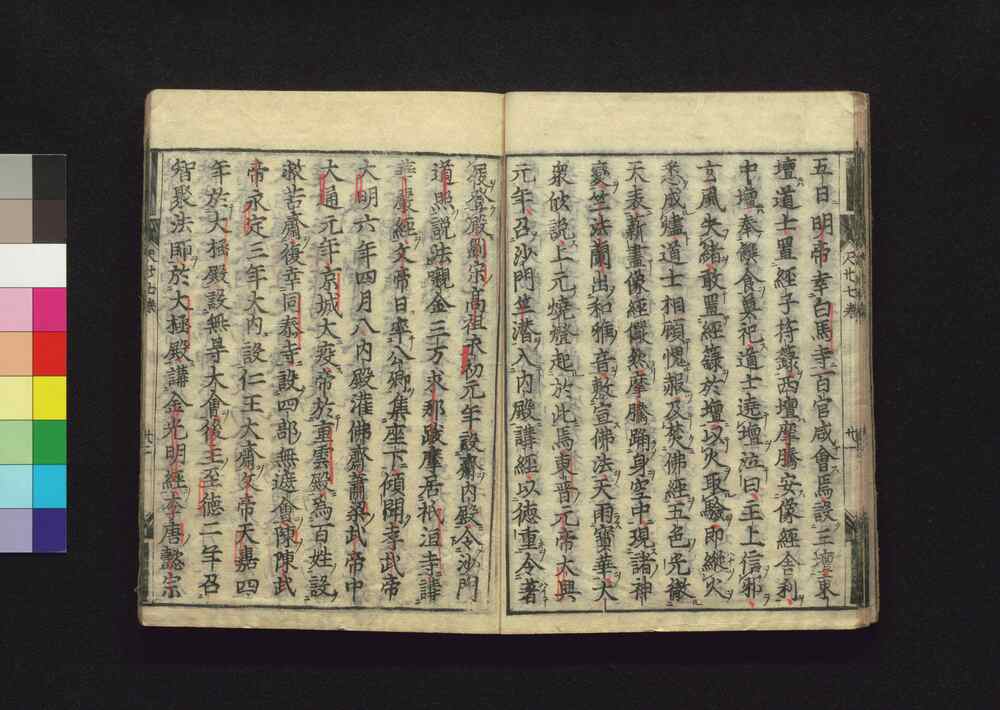 五日明帝幸白馬寺百官咸會焉設三壇東
壇道士置經子符籙西壇摩騰安像經舍利
中壇奉饌食奠祀道士遶壇泣曰主上信邪
玄風失緒敢置經籙於壇以火取驗即縱火
悉成爐道士相顧愧赧及焚佛經五色光徹
天表新畫像經儼然摩騰踊身空中現諸神
變竺法蘭出和雅音敷宣佛法天雨寶華大
衆欣說上元燒燈起於此焉東晉元帝大興
元年召沙門竺潜入內殿講經以德重令著
屐登殿劉宋高祖永初元年設齋內殿令沙門
道照說法嚫金三万求那跋摩居祇洹寺講
華嚴經文帝日率公卿集座下傾聞孝武帝
大明六年四月八內殿灌佛齋蕭梁武帝中
大通元年京城大疫帝於重雲殿為百姓設
救苦齋後幸同泰寺設四部無遮會陳陳武
帝永定三年大內設仁王大齋文帝天嘉四
年於大極殿設無㝵大會後主至德二年召
智聚法師於大極殿講金光明經李唐懿宗